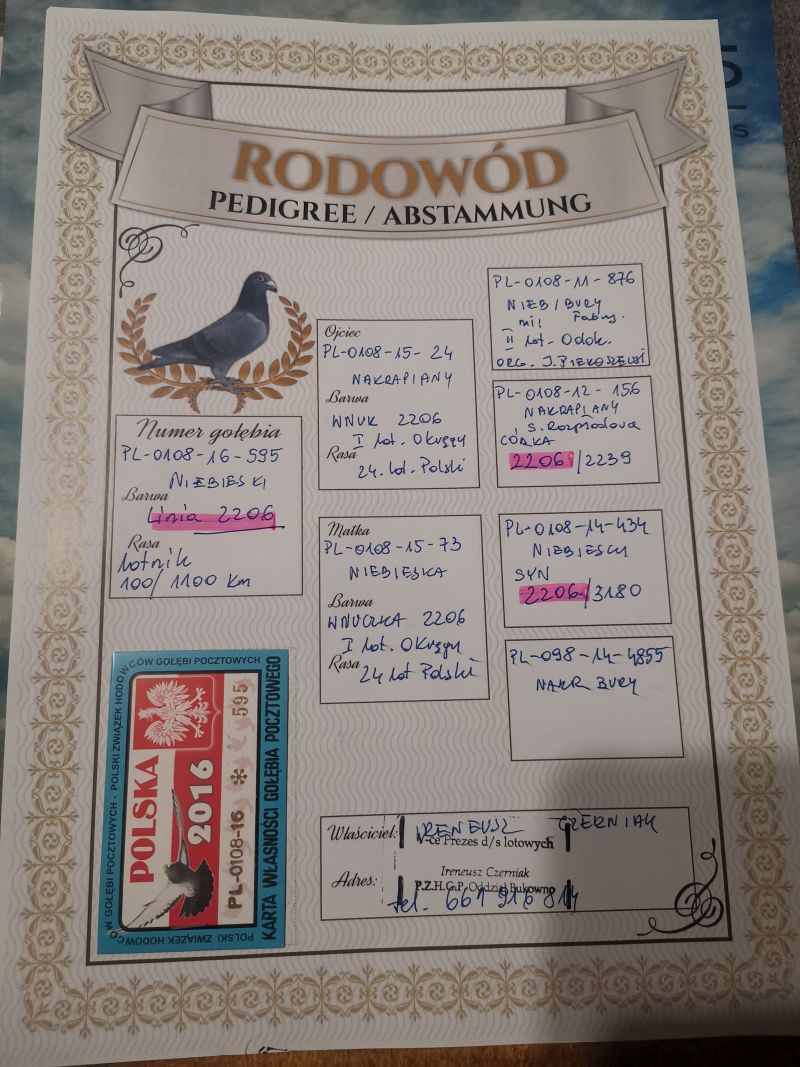 RODOWÓD
PEDIGREE / ABSTAMMUNG
Numer gołębia
PL-0108-16-595
NIEBIESKI
Barwa
Linia 2206
Rasa
Lotnik
100/1100 Km
Ojciec
PL-0108-15-24
NAKRAPIANY
Barwa
WNUK 2206
I lot. Okręgu
Rasa
24. lot. Polski
Matka
PL-0108-15-73
NIEBIESKA
Barwa
WNUCZKA 2206
I lot. Okręgu
Rasa
24 lot Polski
PL-0108-11-876
NIEB/BURY
II lot. Oddk.
ORG.
PL-0108-12-156
NAKRAPIANY
S. Rozpłodowa
CÓRKA
2206/2239
PL-0108-14-434
NIEBIESKI
SYN
2206/3180
PL-098-14-4855
NAKR BURY
POLSKI ZWIĄZEK HODOWCÓW GOŁĘBI POCZTOWYCH
POLSKA
2016
PL-0108-16 * 595
KARTA WŁASNOŚCI GOŁĘBIA POCZTOWEGO
Właściciel: IRENEUSZ CZERNIAK
V-ce Prezes d/s lotowych
Ireneusz Czerniak
Adres: P.Z.H.G.P. Oddział Bukowno
tel. 661 916 814
5
S